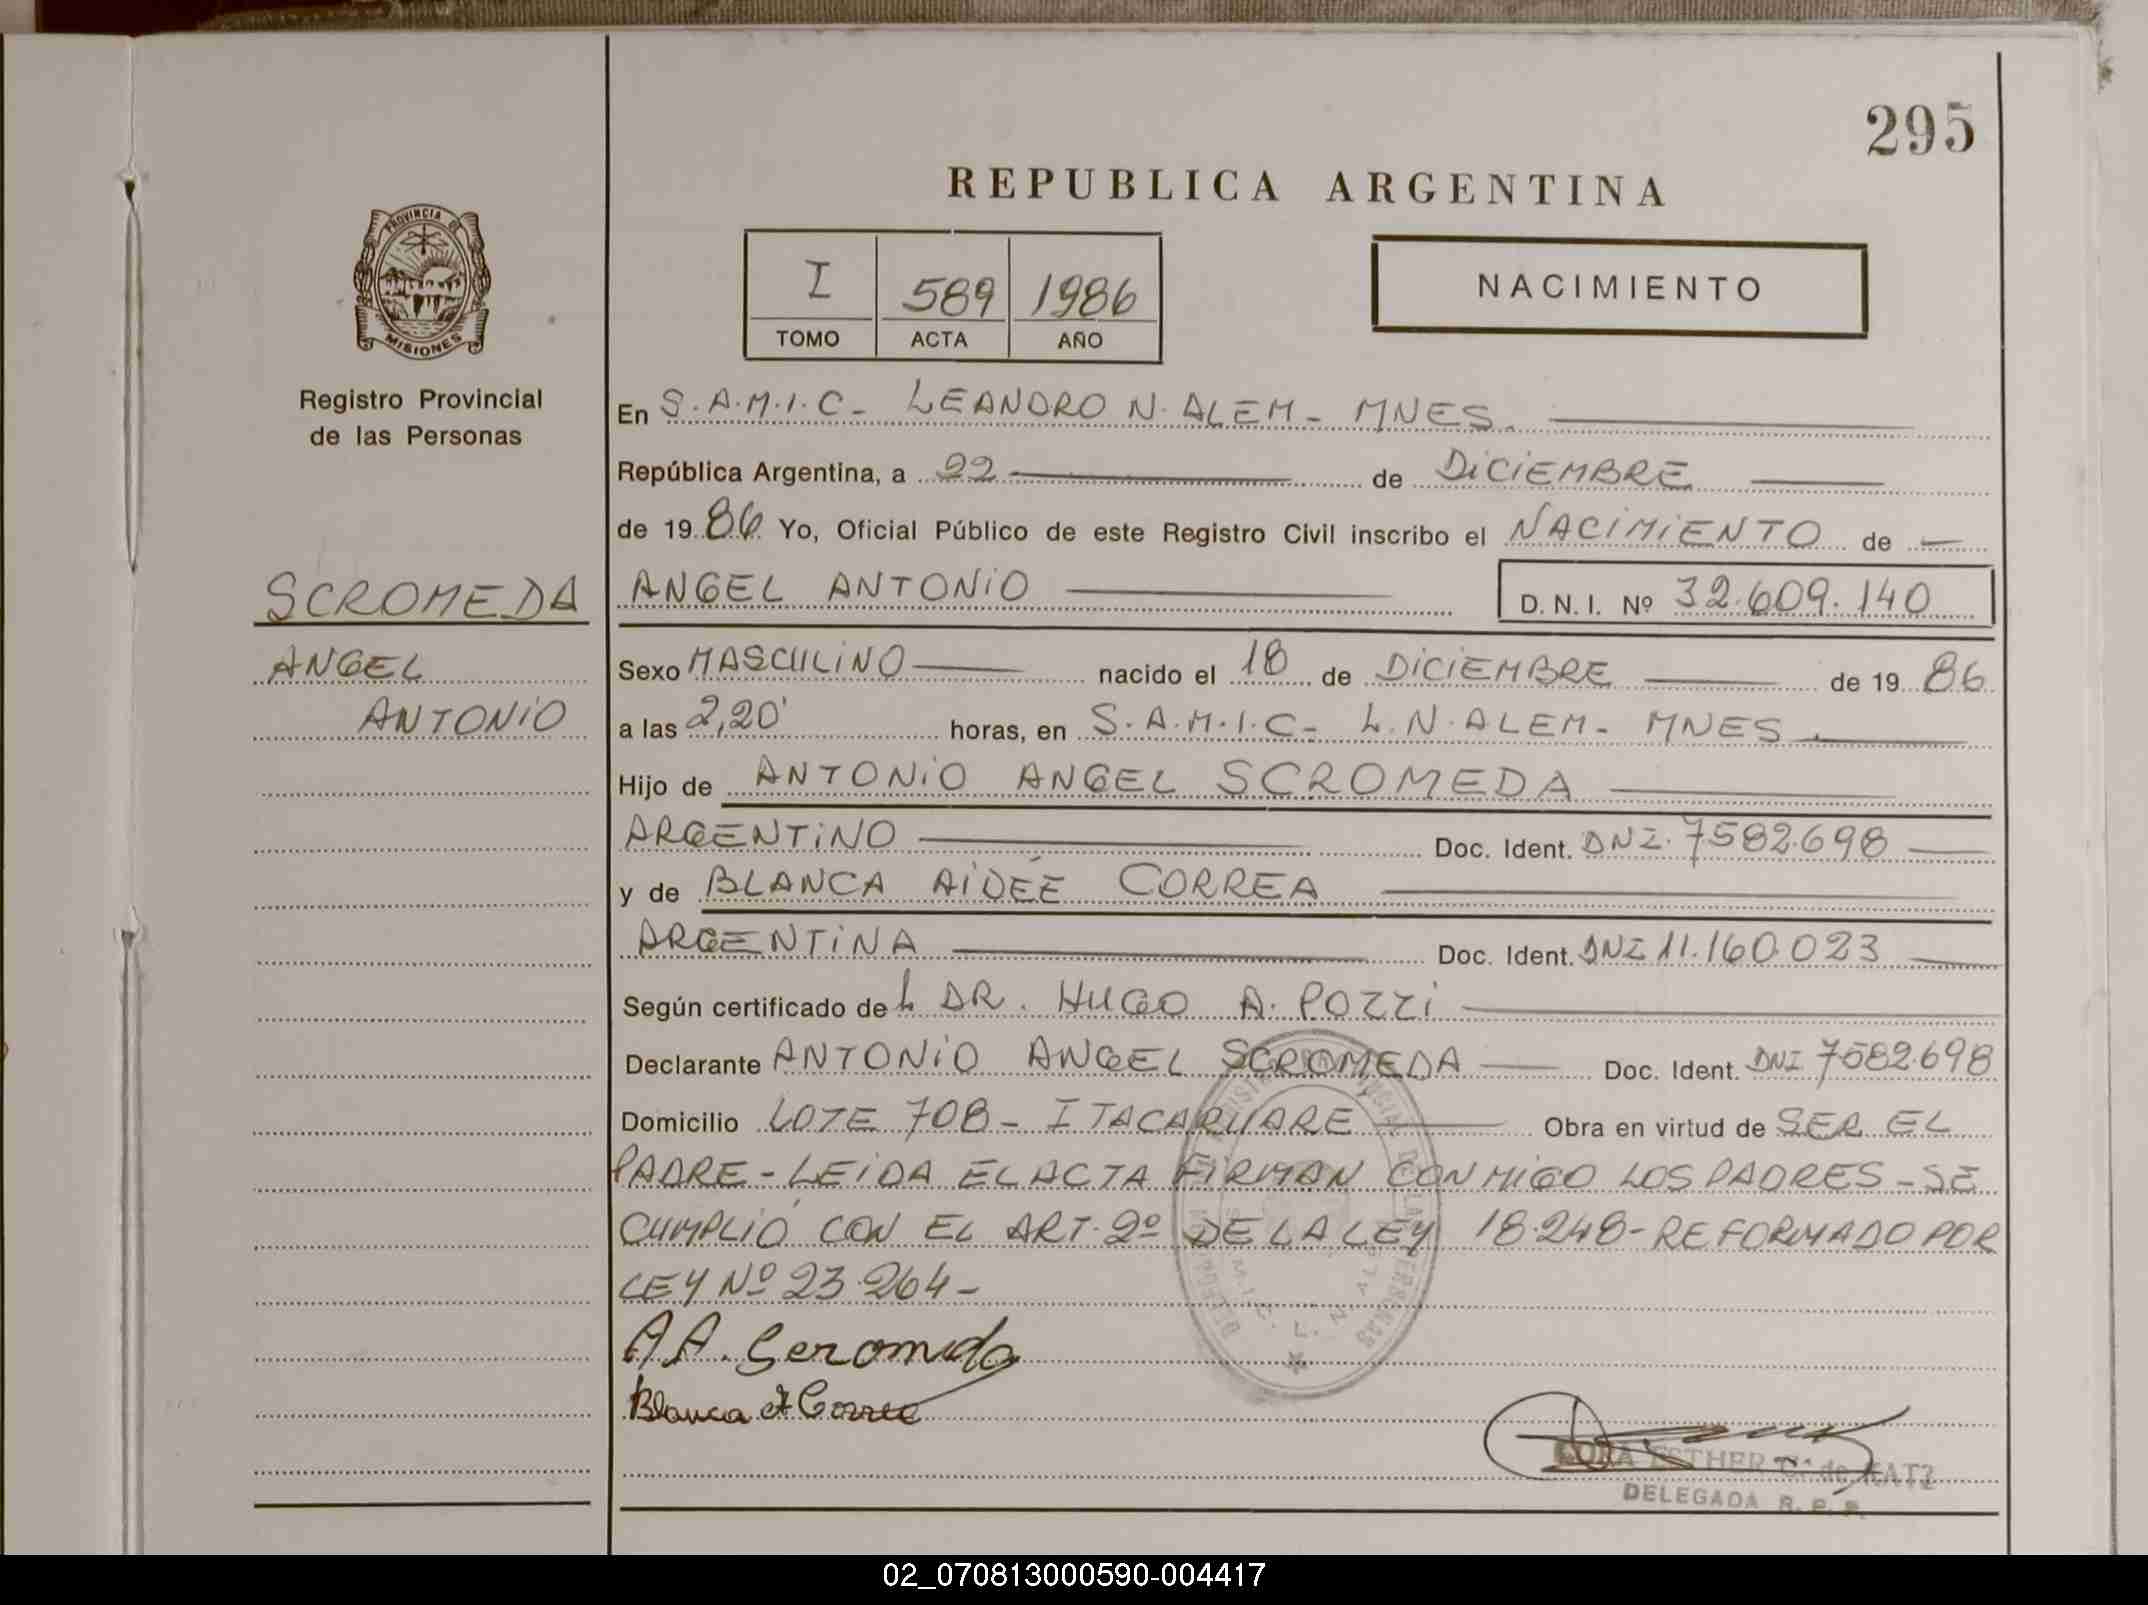 295
REPUBLICA ARGENTINA
PROVINCIA DE
MISIONES
I 589 1986
TOMO ACTA AÑO
NACIMIENTO
Registro Provincial
de las Personas
En S.A.M.I.C- LEANDRO N. ALEM- MNES.
República Argentina, a 22 de DICIEMBRE
de 1986 Yo, Oficial Público de este Registro Civil inscribo el NACIMIENTO de
SCROMEDA
ANGEL ANTONIO D. N. I. Nº 32.609.140
ANGEL
ANTONIO
Sexo MASCULINO nacido el 18 de DICIEMBRE de 1986
a las 2,20' horas, en S.A.M.I.C- L.N. ALEM- MNES.
Hijo de ANTONIO ANGEL SCROMEDA
ARGENTINO Doc. Ident. DNI. 7582.698
y de BLANCA AIDÉE CORREA
ARGENTINA Doc. Ident. DNI 11.160.023
Según certificado del DR. HUGO A. POZZI
Declarante ANTONIO ANGEL SCROMEDA Doc. Ident. DNI 7582.698
Domicilio LOTE 708- ITACARUARE Obra en virtud de SER EL
PADRE - LEIDA EL ACTA FIRMAN CONMIGO LOS PADRES - SE
CUMPLIÓ CON EL ART. 2º DE LA LEY 18.248- REFORMADO POR
LEY Nº 23.264-
A A. Scromeda
Blanca A Correa
ESTHER C. de KATZ
DELEGADA R. P. P.
02_070813000590-004417